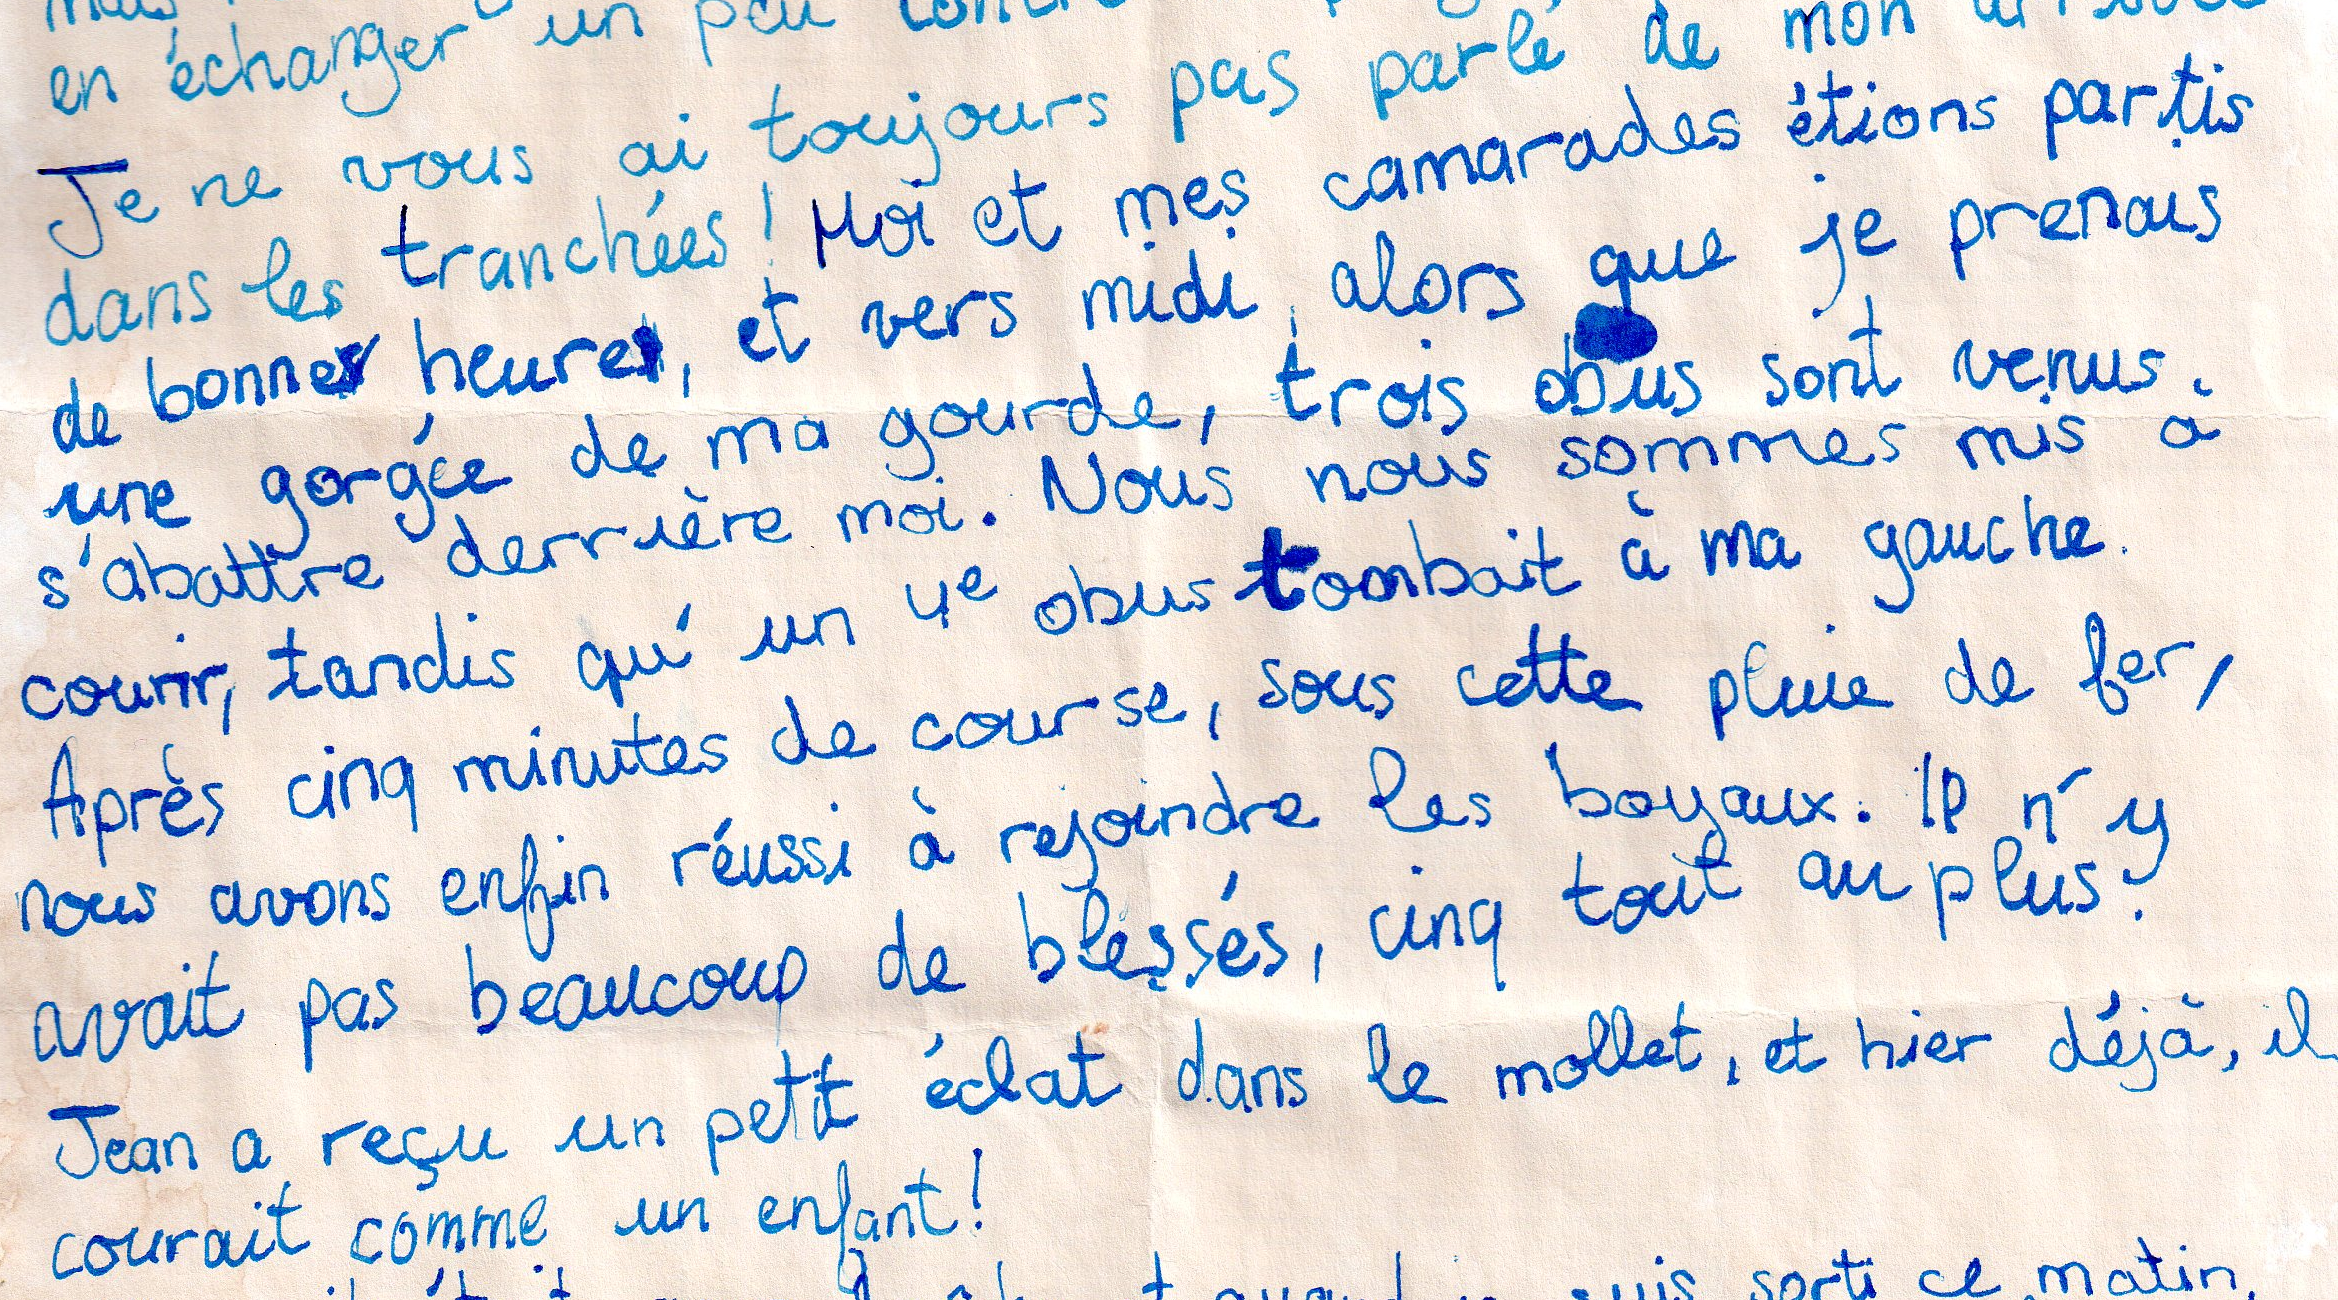 en échanger un peu
Je ne vous ai toujours pas parlé de mon arrivée
dans les tranchées ! Moi et mes camarades étions partis
de bonne heure, et vers midi, alors que je prenais
une gorgée de ma gourde, trois obus sont venus
s'abattre derrière moi. Nous nous sommes mis à
courir, tandis qu'un 4e obus tombait à ma gauche.
Après cinq minutes de course, sous cette pluie de fer,
nous avons enfin réussi à rejoindre les boyaux. Il n'y
avait pas beaucoup de blessés, cinq tout au plus.
Jean a reçu un petit éclat dans le mollet, et hier déjà, il
courait comme un enfant !
suis sorti ce matin,